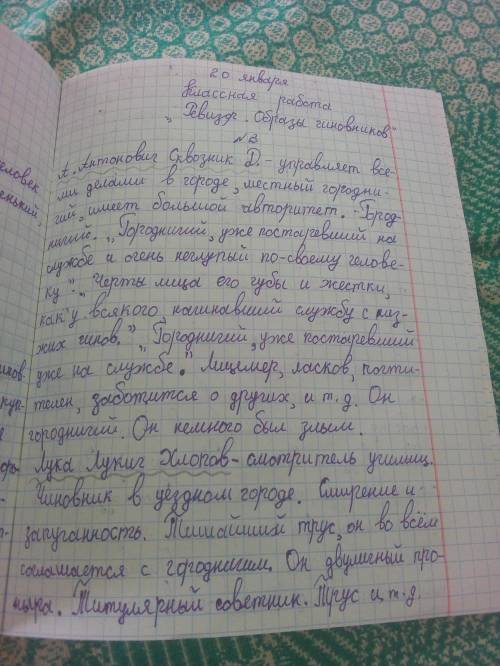 20 января
Классная работа
„Ревизор. Образы чиновников"
№3
А. Антонович Сквозник Д. - управляет все-
ми делами в городе, местный городни-
чий, имеет большой авторитет. Город-
ничий. „Городничий, уже постаревший на
службе и очень неглупый по-своему челове-
ку". „Черты лица его губы и жестки,
как у всякого, начинавший службу с низ-
ких чинов." „Городничий, уже постаревший
уже на службе." Лицемер, ласков, почти-
телен, заботится о других, и т.д. Он
городничий. Он немного был злым.
Лука Лукич Хлопов - смотритель училищ.
Чиновник в уездном городе. Смирение и
запуганность. Тишайший трус, он во всём
соглашается с городничим. Он двуличный про-
ныра. Титулярный советник. Трус и т.д.
человек